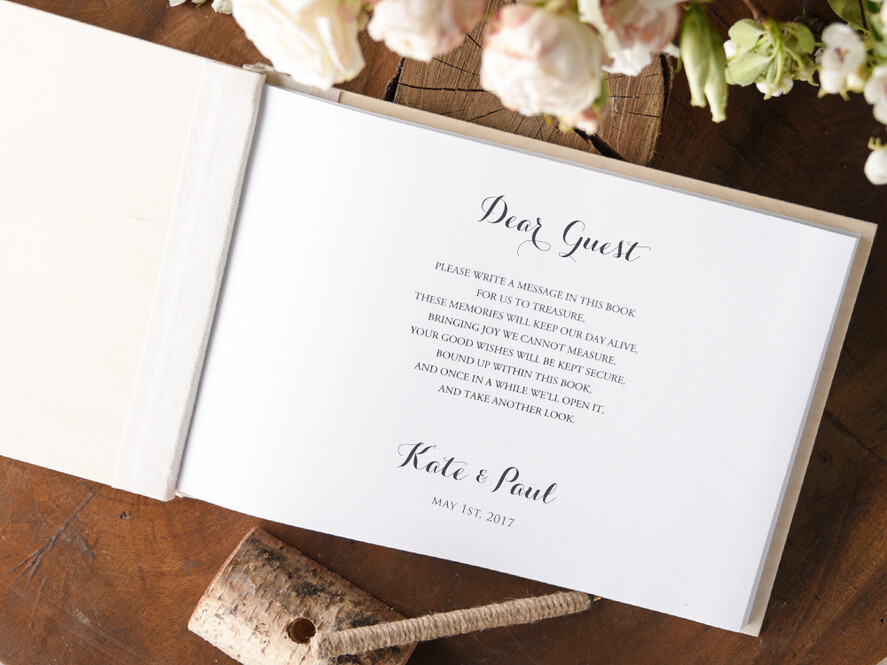 Dear Guest
PLEASE WRITE A MESSAGE IN THIS BOOK
FOR US TO TREASURE,
THESE MEMORIES WILL KEEP OUR DAY ALIVE,
BRINGING JOY WE CANNOT MEASURE,
YOUR GOOD WISHES WILL BE KEPT SECURE,
BOUND UP WITHIN THIS BOOK,
AND ONCE IN A WHILE WE'LL OPEN IT,
AND TAKE ANOTHER LOOK.
Kate & Paul
MAY 1ST, 2017